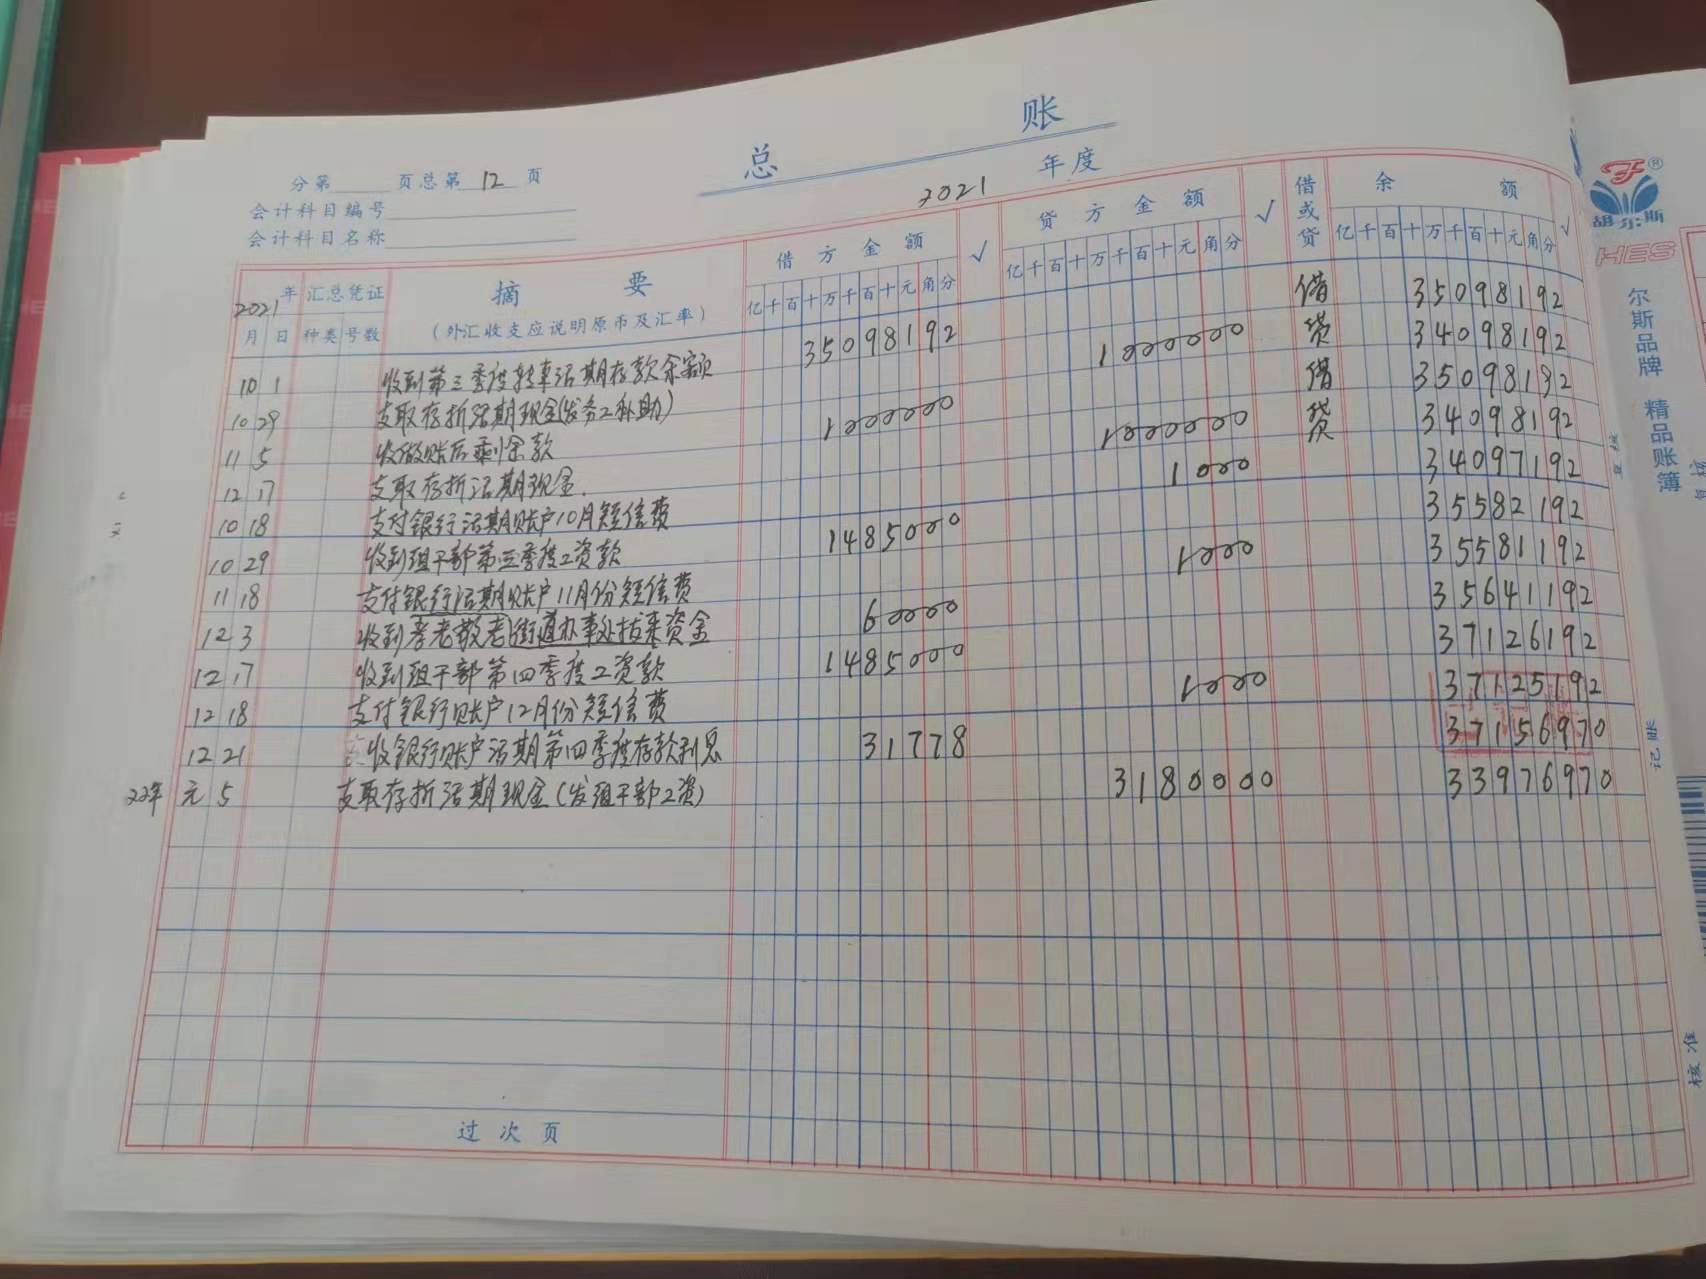 总 账
分第 页总第 12 页
2021 年度
会计科目编号
会计科目名称
2021 年 汇总凭证 摘 要 借方金额 √ 贷方金额 √ 借或贷 余 额 √
月 日 种类 号数 (外汇收支应说明原币及汇率) 亿千百十万千百十元角分 亿千百十万千百十元角分 亿千百十万千百十元角分
10 1 收到第三季度转来活期存款余额 35098192 借 35098192
10 29 支取存折活期现金(发务工补助) 1000000 贷 34098192
11 5 收做账后剩余款 1000000 借 35098192
12 17 支取存折活期现金. 1000000 贷 34098192
10 18 支付银行活期账户10月短信费 1000 34097192
10 29 收到组干部第三季度工资款 1485000 35582192
11 18 支付银行活期账户11月份短信费 1000 35581192
12 3 收到孝老敬老街道办事处拔来资金 60000 35641192
12 17 收到组干部第四季度工资款 1485000 37126192
12 18 支付银行账户12月份短信费 1000 37125192
12 21 收银行账户活期第四季度存款利息 31778 37156970
22年 元 5 支取存折活期现金(发组干部工资) 3180000 33976970
过次页
记账
核准
胡尔斯
HES
尔斯品牌 精品账簿